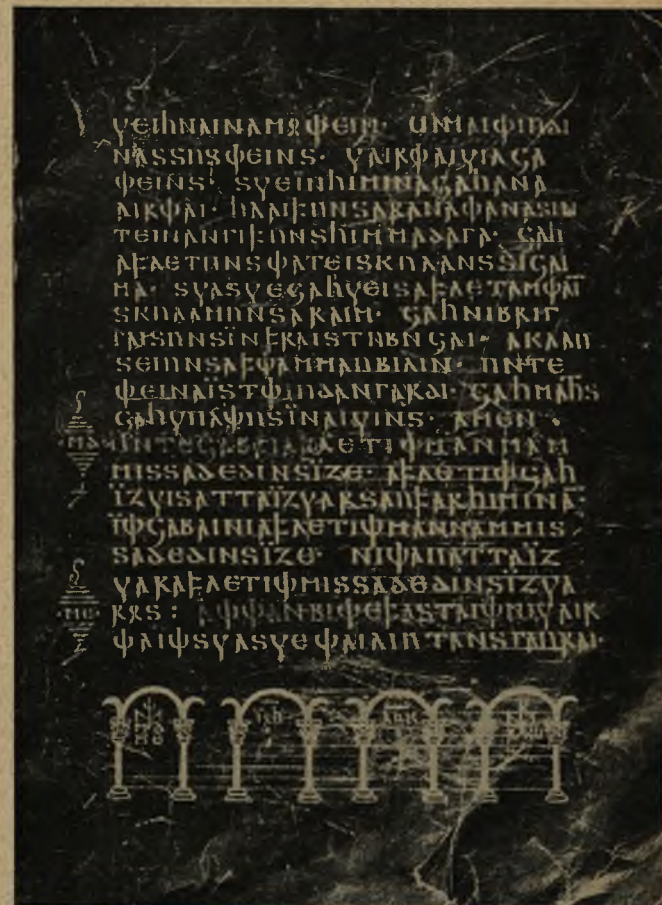 𐍅𐌴𐌹𐌷𐌽𐌰𐌹𐌽𐌰𐌼𐍉𐌸𐌴𐌹𐌽· 𐌵𐌹𐌼𐌰𐌹𐌸𐌹𐌿𐌳𐌹
𐌽𐌰𐍃𐍃𐌿𐍃𐌸𐌴𐌹𐌽𐍃· 𐍅𐌰𐌹𐍂𐌸𐌰𐌹𐍅𐌹𐌻𐌾𐌰
𐌸𐌴𐌹𐌽𐍃· 𐍃𐍅𐌴𐌹𐌽𐌷𐌹𐌼𐌹𐌽𐌰𐌾𐌰𐌷𐌰𐌽𐌰
𐌰𐌹𐍂𐌸𐌰𐌹· 𐌷𐌻𐌰𐌹𐍆𐌿𐌽𐍃𐌰𐍂𐌰𐌽𐌰𐌸𐌰𐌽𐌰𐍃𐌹𐌽
𐍄𐌴𐌹𐌽𐌰𐌽𐌲𐌹𐍆𐌿𐌽𐍃𐌷𐌹𐌼𐌼𐌰𐌳𐌰𐌲𐌰· 𐌾𐌰𐌷
𐌰𐍆𐌻𐌴𐍄𐌿𐌽𐍃𐌸𐌰𐍄𐌴𐌹𐍃𐌺𐌿𐌻𐌰𐌽𐍃𐍃𐌹𐌾𐌰𐌹
𐌼𐌰· 𐍃𐍅𐌰𐍃𐍅𐌴𐌾𐌰𐌷𐍅𐌴𐌹𐍃𐌰𐍆𐌻𐌴𐍄𐌰𐌼𐌸𐌰𐌹
𐍃𐌺𐌿𐌻𐌰𐌼𐌿𐌽𐍃𐌰𐍂𐌰𐌹𐌼· 𐌾𐌰𐌷𐌽𐌹𐌱𐍂𐌹𐌲
𐌲𐌰𐌹𐍃𐌿𐌽𐍃𐌹̈𐌽𐍆𐍂𐌰𐌹𐍃𐍄𐌿𐌱𐌽𐌾𐌰𐌹· 𐌰𐌺𐌻𐌰𐌿
𐍃𐌴𐌹𐌿𐌽𐍃𐌰𐍆𐌸𐌰𐌼𐌼𐌰𐌿𐌱𐌹𐌻𐌹𐌽· 𐌿𐌽𐍄𐌴
𐌸𐌴𐌹𐌽𐌰𐌹̈𐍃𐍄𐌸𐌹𐌿𐌳𐌰𐌽𐌲𐌰𐍂𐌳𐌹· 𐌾𐌰𐌷𐌼𐌰𐌷𐍄𐍃
𐌾𐌰𐌷𐍅𐌿𐌻𐌸𐌿𐍃𐌹̈𐌽𐌰𐌹𐍅𐌹𐌽𐍃· 𐌰𐌼𐌴𐌽·
·𐌼𐌳· 𐌿𐌽𐍄𐌴𐌾𐌰𐌱𐌰𐌹𐌰𐍆𐌻𐌴𐍄𐌹𐌸𐌼𐌰𐌽𐌽𐌰𐌼
𐌼𐌹𐍃𐍃𐌰𐌳𐌴𐌳𐌹𐌽𐍃𐌹̈𐌶𐌴· 𐌰𐍆𐌻𐌴𐍄𐌹𐌸𐌾𐌰𐌷
𐌹̈𐌶𐍅𐌹𐍃𐌰𐍄𐍄𐌰𐌹̈𐌶𐍅𐌰𐍂𐍃𐌰𐌿𐍆𐌰𐍂𐌷𐌹𐌼𐌹𐌽𐌰·
𐌹̈𐌸𐌾𐌰𐌱𐌰𐌹𐌽𐌹𐌰𐍆𐌻𐌴𐍄𐌹𐌸𐌼𐌰𐌽𐌽𐌰𐌼𐌼𐌹𐍃
𐍃𐌰𐌳𐌴𐌳𐌹𐌽𐍃𐌹̈𐌶𐌴· 𐌽𐌹𐌸𐌰𐌿𐌰𐍄𐍄𐌰𐌹̈𐌶
𐍅𐌰𐍂𐌰𐍆𐌻𐌴𐍄𐌹𐌸𐌼𐌹𐍃𐍃𐌰𐌳𐌴𐌳𐌹𐌽𐍃𐌹̈𐌶𐍅𐌰
·𐌼𐌴· 𐍂𐍉𐍃: 𐌰𐌸𐌸𐌰𐌽𐌱𐌹𐌸𐌴𐍆𐌰𐍃𐍄𐌰𐌹𐌸𐌽𐌹𐍅𐌰𐌹𐍂
𐌸𐌰𐌹𐌸𐍃𐍅𐌰𐍃𐍅𐌴𐌸𐌰𐌹𐌻𐌹𐌿𐍄𐌰𐌽𐍃𐌲𐌰𐌿𐍂𐌰𐌹·